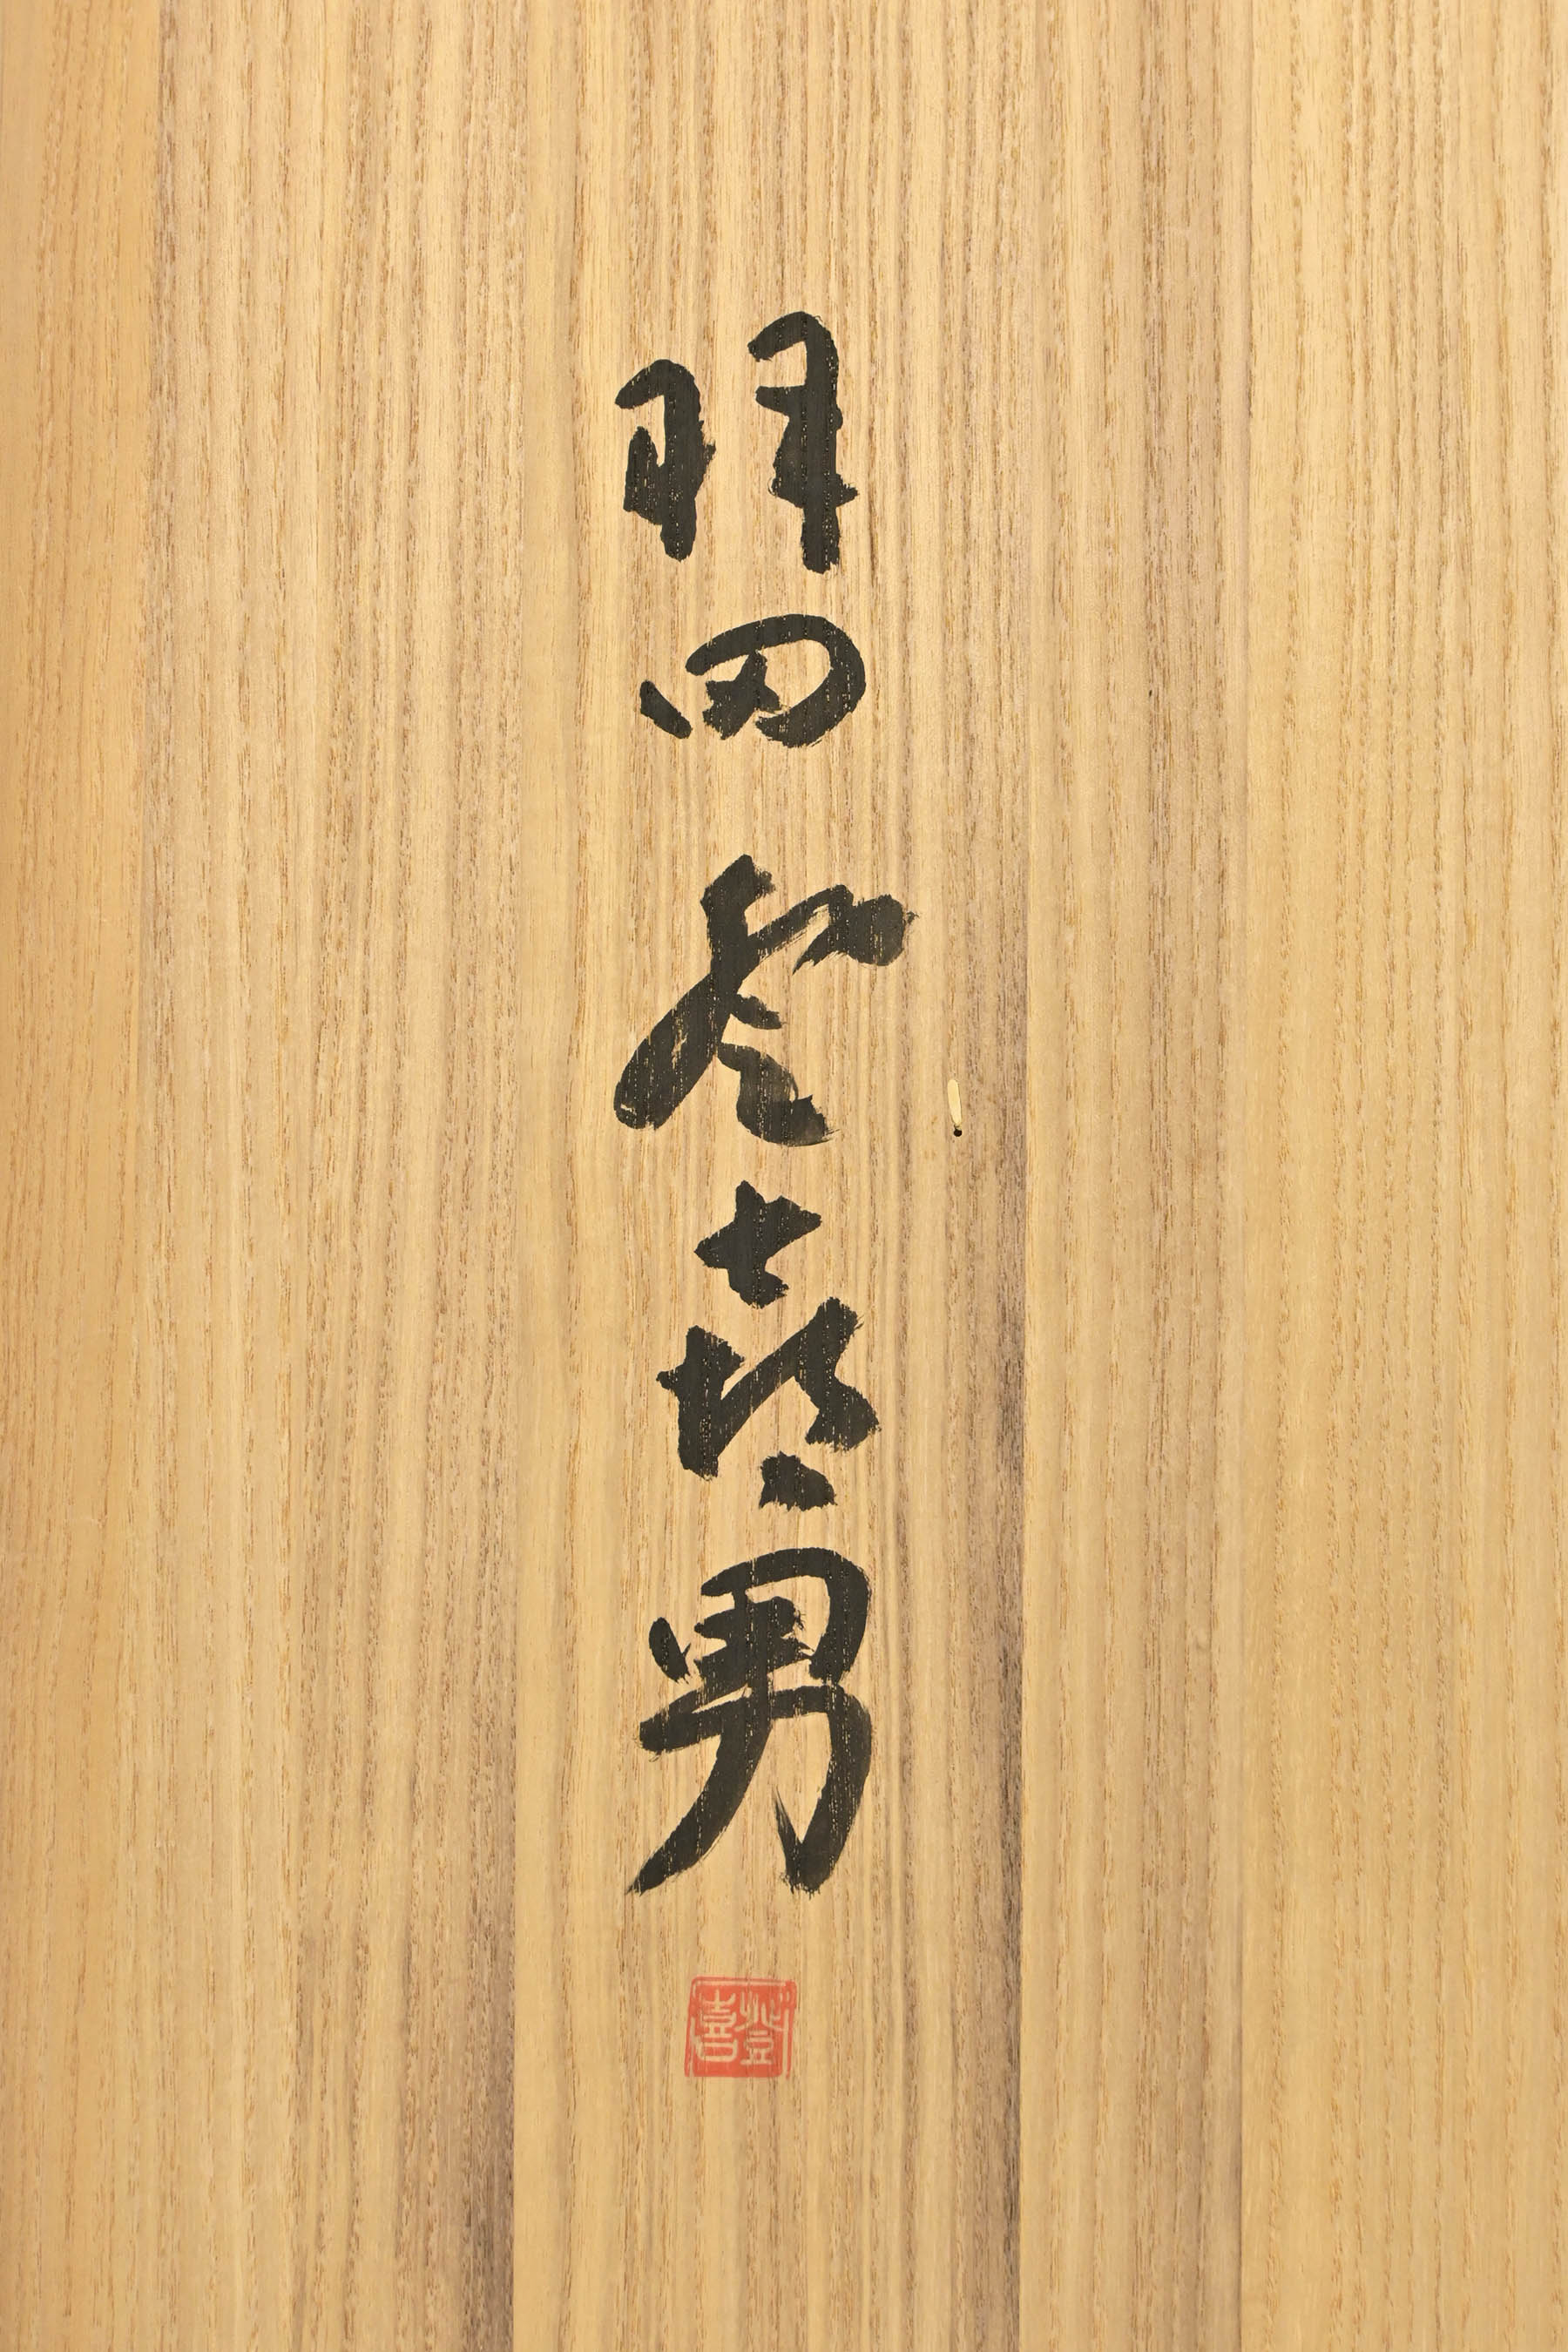 羽田登喜男
登喜